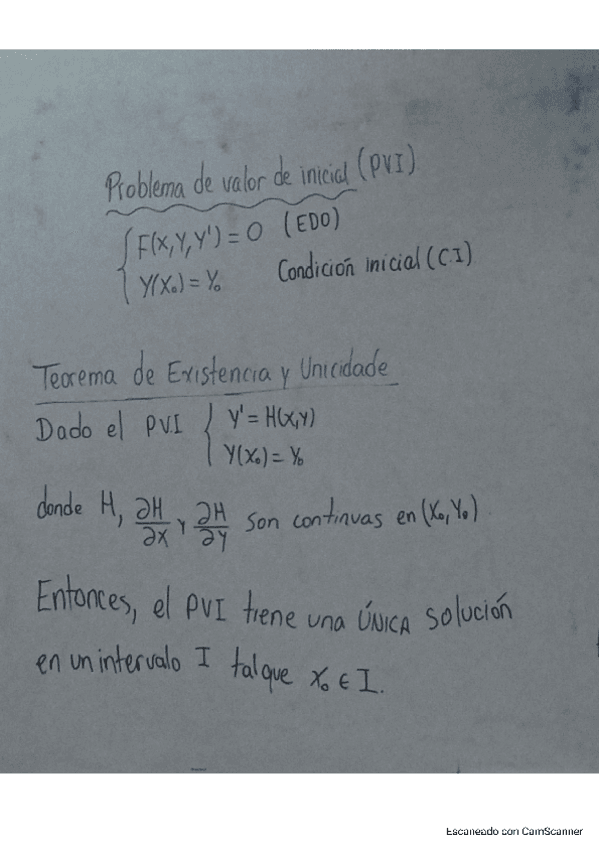 Problema de valor de inicial (PVI)
F(x,y,y') = 0 (EDO)
y(x₀) = y₀ Condición inicial (C.I)
Teorema de Existencia y Unicidade
Dado el P.V.I { y' = H(x,y)
y(x₀) = y₀
donde H, ∂H/∂x y ∂H/∂y son continuas en (x₀,y₀)
Entonces, el PVI tiene una ÚNICA solución
en un intervalo I tal que x₀ ∈ I.
Escaneado con CamScanner